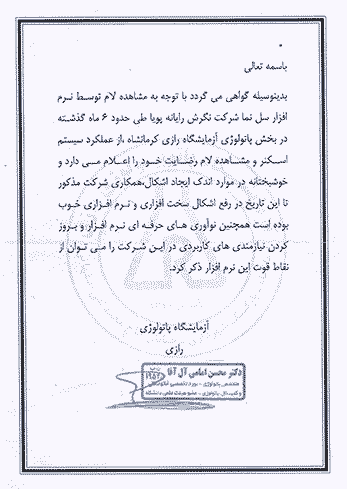 باسمه تعالی
بدینوسیله گواهی می گردد با توجه به مشاهده لام توسط نرم
افزار سل نما شرکت نگرش رایانه پویا طی حدود ۶ ماه گذشته
در بخش پاتولوژی آزمایشگاه رازی کرمانشاه ،از عملکرد سیستم
اسکنر و مشاهده لام رضایت خود را إعلام می دارد و
خوشبختانه در موارد اندک ایجاد اشکال،همکاری شرکت مذکور
تا این تاریخ در رفع اشکال سخت افزاری و نرم افزاری خوب
بوده است همچنین نوآوری های حرفه ای نرم افزار و بروز
کردن نیازمندی های کاربردی در این شرکت را می توان از
نقاط قوت این نرم افزار ذکر کرد.
آزمایشگاه پاتولوژی
رازی
دکتر محسن امامی آل آقا
متخصص پاتولوژی - بورد تخصصی